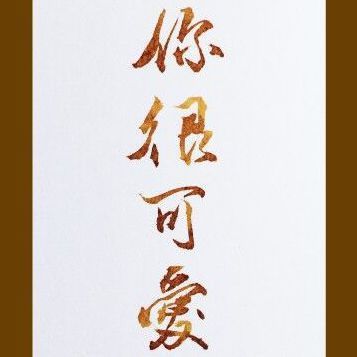 你很可愛